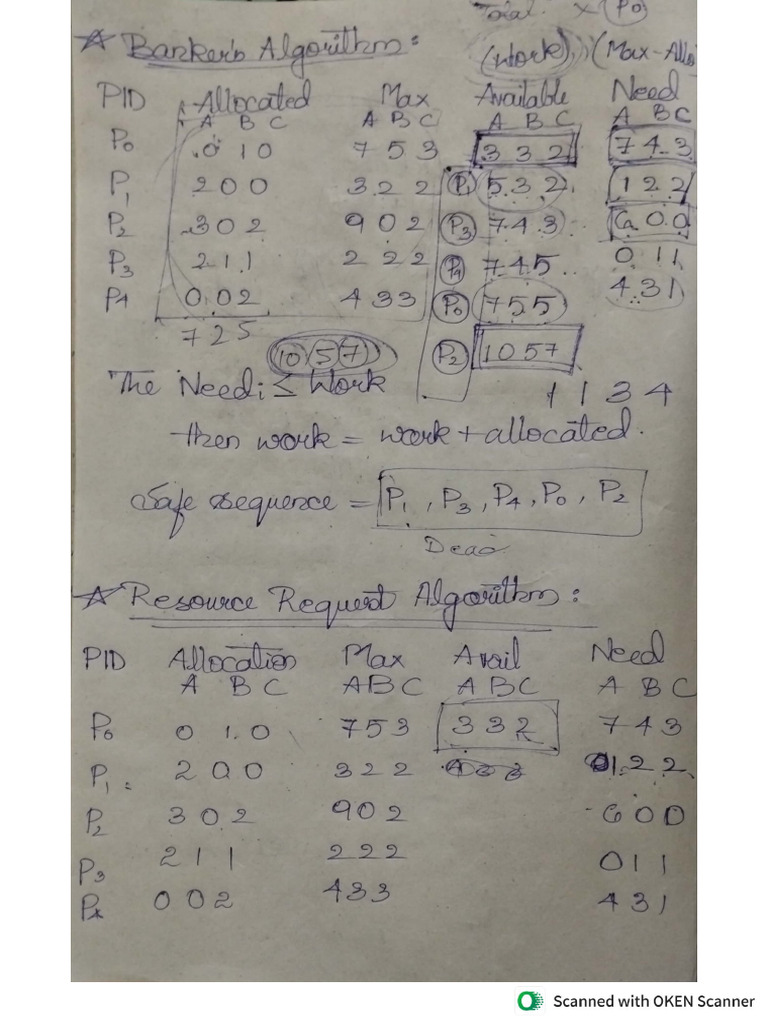 Total × P0
☆ Banker's Algorithm: (Work) (Max-Allo
PID Allocated Max Available Need
A B C A B C A B C A B C
P0 0 1 0 7 5 3 3 3 2 7 4 3
P1 2 0 0 3 2 2 P1 5 3 2 1 2 2
P2 3 0 2 9 0 2 P3 7 4 3 6 0 0
P3 2 1 1 2 2 2 P4 7 4 5 0 1 1
P4 0 0 2 4 3 3 P0 7 5 5 4 3 1
7 2 5
10 5 7 P2 10 5 7
The Needi ≤ Work 1 1 3 4
then work = work + allocated.
Safe sequence = P1, P3, P4, P0, P2
Dead
☆ Resource Request Algorithm:
PID Allocation Max Avail Need
A B C A B C A B C A B C
P0 0 1 0 7 5 3 3 3 2 7 4 3
P1 2 0 0 3 2 2 1 2 2
P2 3 0 2 9 0 2 6 0 0
P3 2 1 1 2 2 2 0 1 1
P4 0 0 2 4 3 3 4 3 1
Scanned with OKEN Scanner